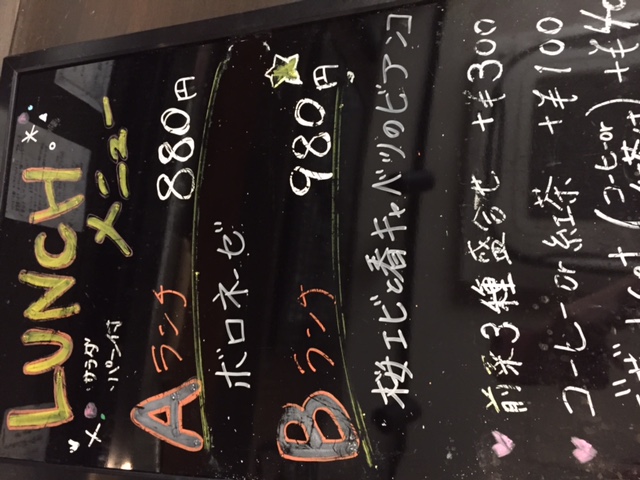 LUNCH
メニュー
サラダ
パン付
Aランチ 880円
ボロネーゼ
Bランチ 980円
桜エビと春キャベツのビアンコ
前菜3種盛合せ +¥300
コーヒー or 紅茶 +¥100
(コーヒー or